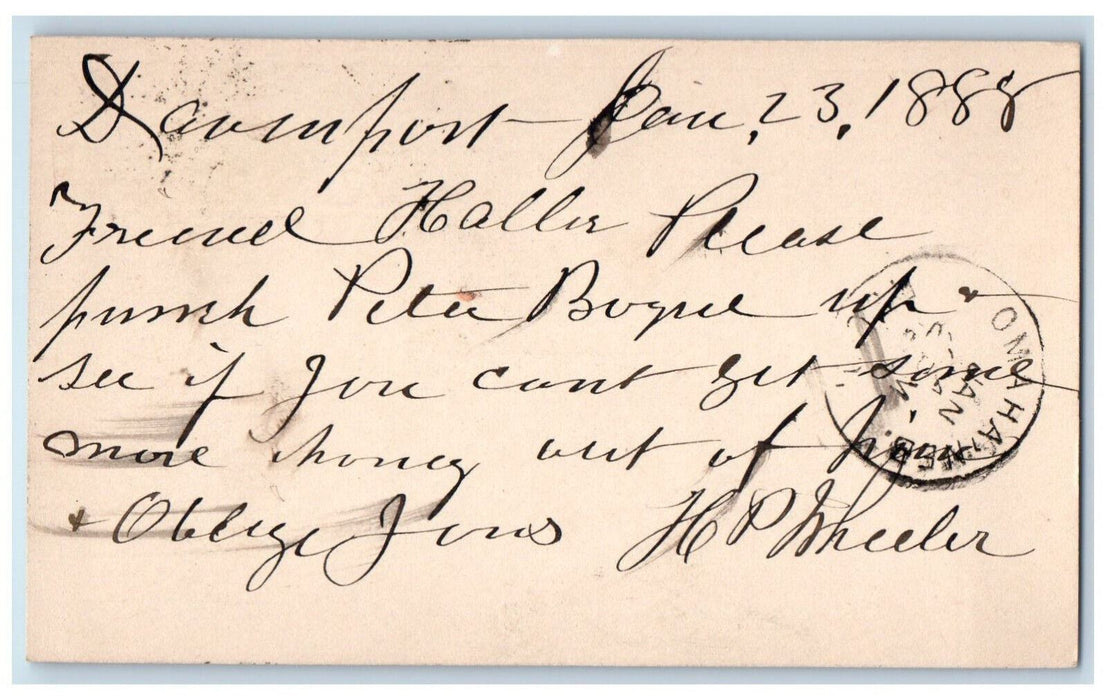 Davenport Jan, 23, 1888
Friend Haller Please
punch Peter Bogue up +
see if you cant get some
more money out of him
+ Oblige Yours H P Wheeler
OMAHA, NEB.
JAN